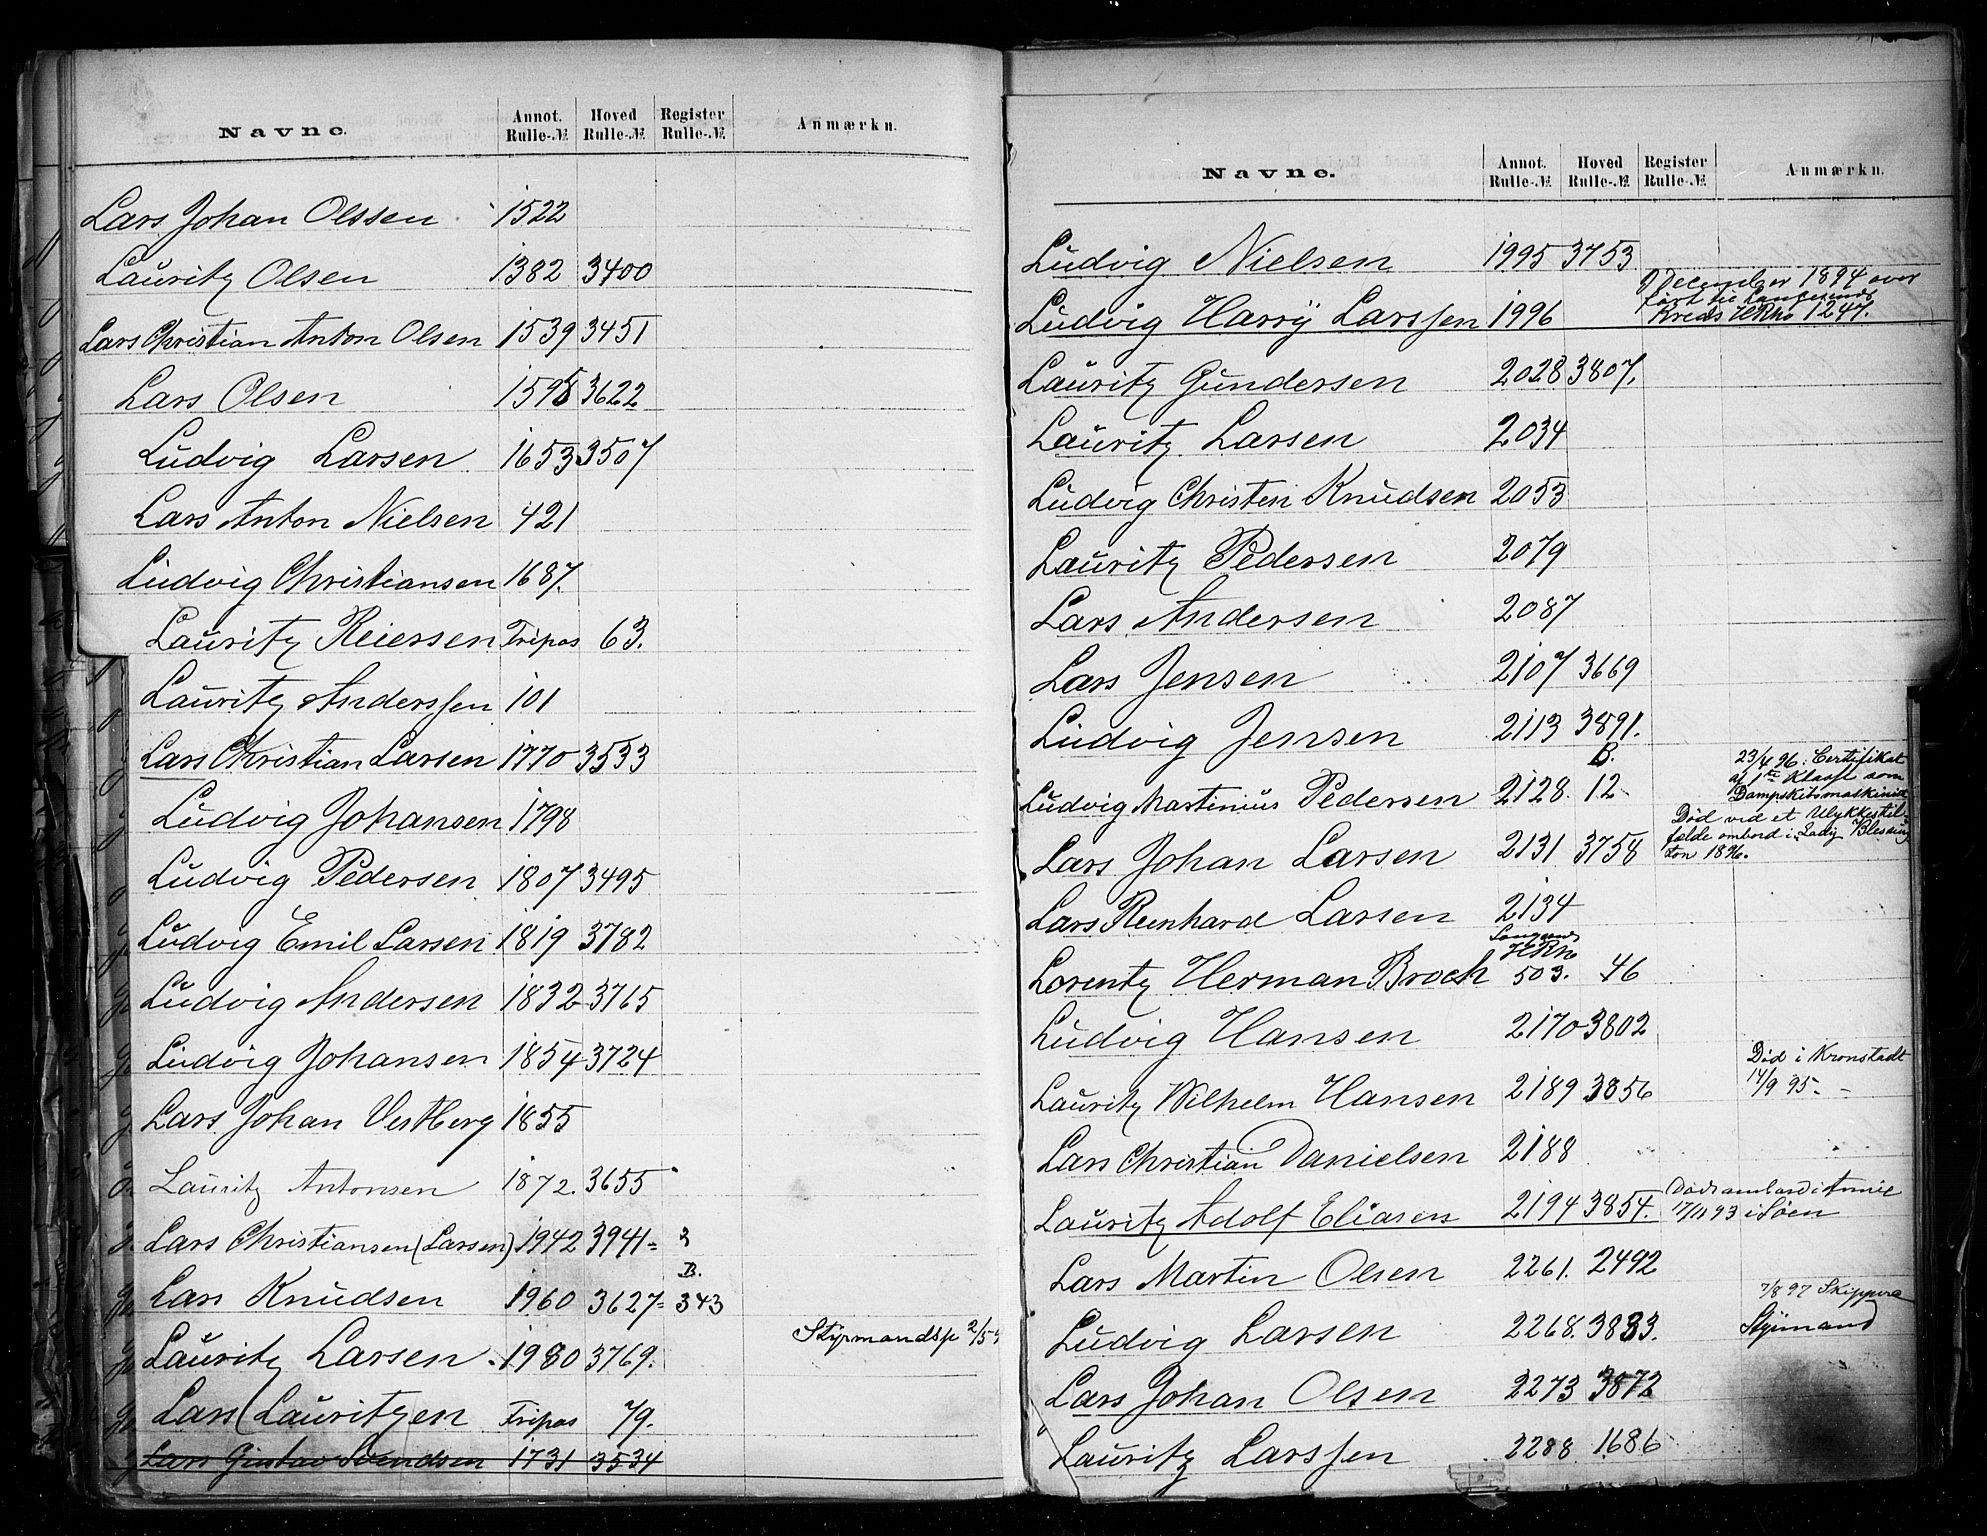 Navne. Annot. Rulle-№ Hoved Rulle-№ Register Rulle-№ Anmærkn.
Lars Johan Olssen 1522
Lauritz Olsen 1382 3400
Lars Christian Anton Olsen 1539 3451
Lars Olsen 1598 3622
Ludvig Larsen 1653 3507
Lars Anton Nielsen 421
Ludvig Christiansen 1687.
Lauritz Reiersen Tripas 63.
Lauritz Anderssen 101
Lars Christian Larsen 1770 3533
Ludvig Johansen 1798
Ludvig Pedersen 1807 3495
Ludvig Emil Larsen 1819 3782
Ludvig Andersen 1832 3765
Ludvig Johansen 1854 3724
Lars Johan Vestberg 1855
Lauritz Antonsen 1872. 3655
Lars Christiansen (Larsen) 1942 3941
Lars Knudsen 1960 3627 B. 343
Lauritz Larsen 1980 3769. Stýrmandsp 2/5
Lars (Lauritzen Tripas 79.
Lars Gustav Svendsen 1731 3534
Navne. Annot. Rulle-№ Hoved Rulle-№ Register Rulle-№ Anmærkn.
Ludvig Nielsen 1995 3753
December 1894 over
ført til Langesunds
Ludvig Harrÿ Larssen 1996 Kreds HRno 1247.
Lauritz Gundersen 2028 3807.
Lauritz Larsen 2034
Ludvig Christen Knudsen 2053
Lauritz Pedersen 2079
Lars Andersen 2087
Lars Jensen 2107 3669
Ludvig Jensen 2113 3891.
23/4 96. Certifikat
af 1ste Klasse som
Ludvig Martinius Pedersen 2128. B. 12 Dampskibsmaskinist
Død ved et Ulykkestil-
fælde ombord i Lady Blessing
Lars Johan Larsen 2131 3758 ton 1896.
Lars Reinhard Larsen 2134
Langesunds
HRn
Lorentz Herman Broch 503. 46
Ludvig Hansen 2170 3802
Død i Kronstadt
Lauritz Wilhelm Hansen 2189 3856 14/9 95.
Lars Christian Danielsen 2188
Død ombord i Annie
Lauritz Adolf Eliasen 2194 3854. 17/11 93 i Søen
Lars Martin Olsen 2261. 2492
7/8 97 Skippere
Ludvig Larsen 2268. 3833. Stýrmand
Lars Johan Olsen 2273 3872
Lauritz Larssen 2288 1686